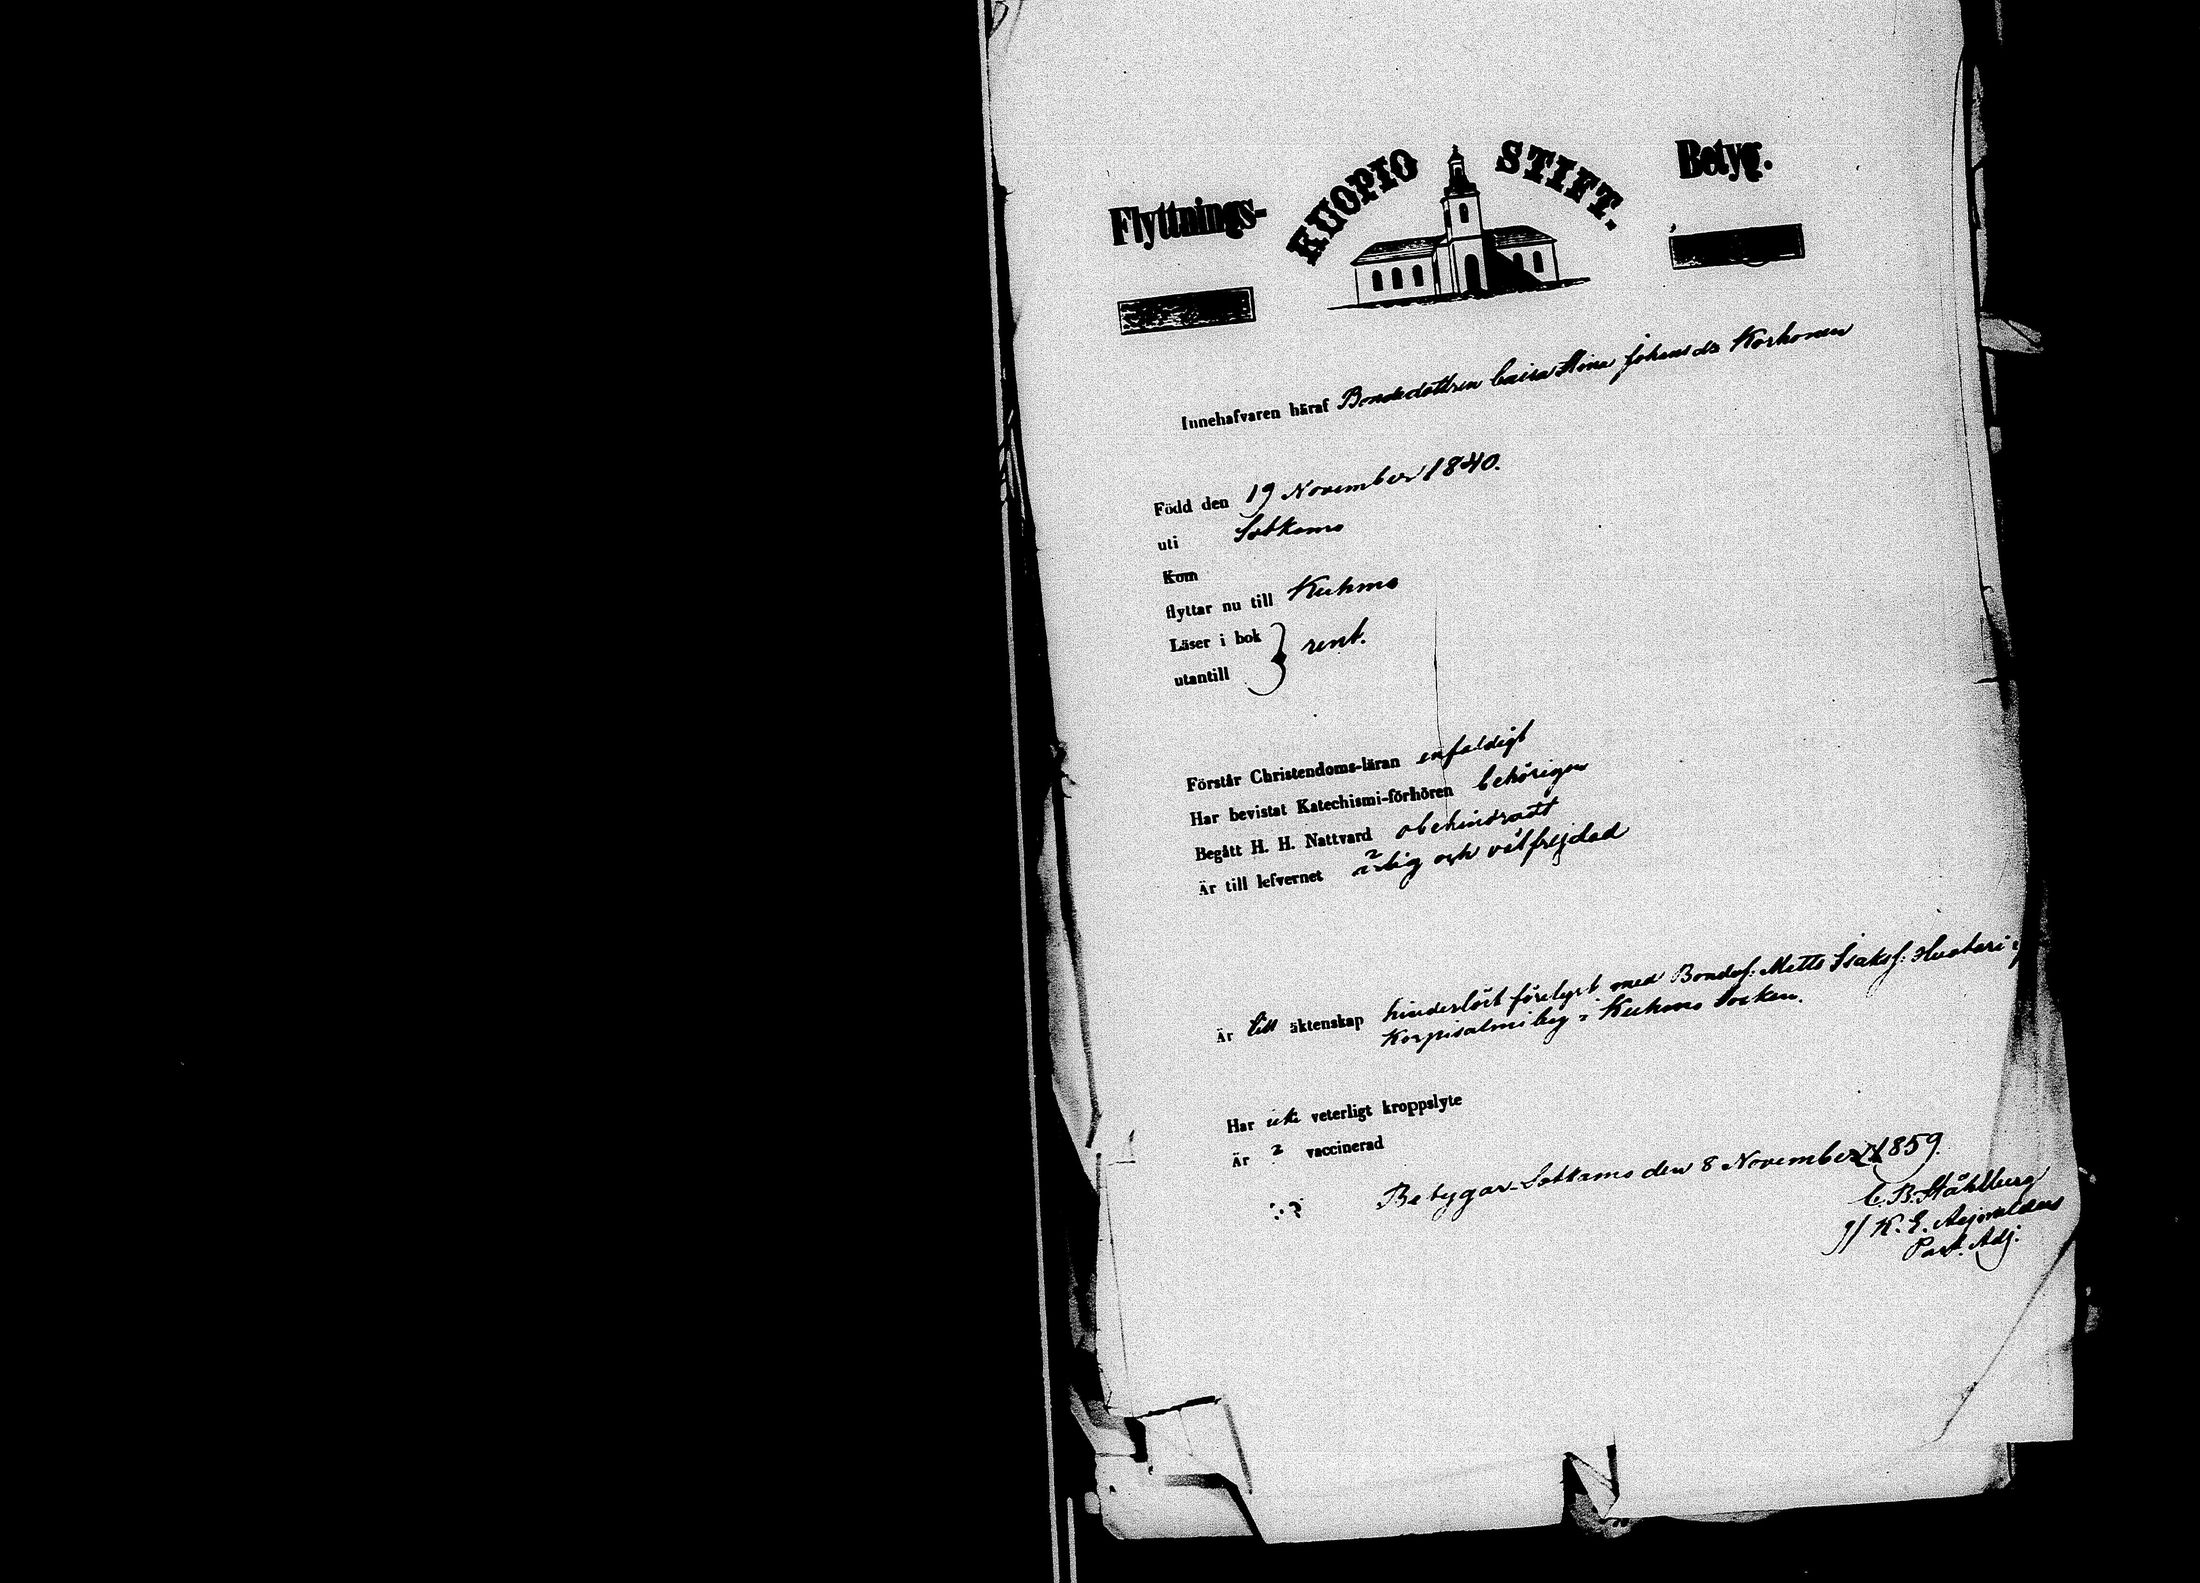 Flyttnings- KUOPIO STIFT. Betyg.
Innehafvaren häraf Bondedottren Caisa Stina Johansdr Korhonen
Född den 19 November 1840.
uti Sotkamo
Kom
flyttar nu till Kuhmo
Läser i bok } rent.
utantill
Förstår Christendoms-läran enfaldigt
Har bevistat Katechismi-förhören behörigen
Begått H. H. Nattvard obehindradt
Är till lefvernet ärlig och välfrejdad
Är till äktenskap hinderlöst förelyst med Bondes: Matts Isaksf: Huotari i
Korpisalmi by i Kuhmo Socken.
Har icke veterligt kroppslyte
Är vaccinerad
Betygar Sotkamo den 8 November 1859.
C. B. Ståhlberg
g/ K. E.
Past. Adj.